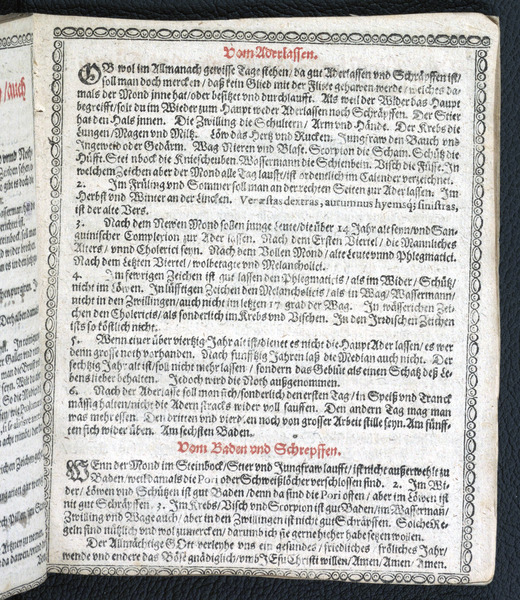 Vom Aderlassen.
OB wol im Allmanach gewisse Tage stehen / da gut Aderlassen vnd Schräpffen ist /
soll man doch mercken / daß kein Glied mit der Fliete gehawen werde / welches da-
mals der Mond inne hat / oder besitzt vnd durchlaufft. Als weil der Wider das Haupt
begreifft / solt du im Wieder zum Haupt weder Aderlassen noch Schräpffen. Der Stier
hat den Hals jnnen. Die Zwilling die Schultern / Arm vnd Hände. Der Krebs die
Lungen / Magen vnd Miltz. Löw das Hertz vnd Rucken. Jungfraw den Bauch vnd
Ingeweid oder Gedärm. Wag Nieren vnd Blase. Scorpion die Scham. Schütz die
Hüfft. Steinbock die Knieschauben. Wassermann die Schienbein. Visch die Füsse. In
welchem Zeichen aber der Mond alle Tag laufft / ist ordentlich im Calender verzeichnet.
2. Im Früling vnd Sommer soll man an der rechten Seiten zur Ader lassen. Im
Herbst vnd Winter an der Lincken. Ver æstas dextras, autumnus hyemsq; sinistras,
ist der alte Vers.
3. Nach dem Newen Mond sollen junge Leute / die über 14 Jahr alt seyn / vnd San-
guinischer Complexion zur Ader lassen. Nach dem Ersten Viertel / die Mannliches
Alters / vnnd Cholerici seyn. Nach dem Vollen Mond / alte Leute vnnd Phlegmatici.
Nach dem Letzten Viertel / wolbetagte vnd Melancholici.
4. Im fewrigen Zeichen ist gut lassen den Phlegmaticis / als im Wider / Schütz /
nicht im Löwen. In lüfftigen Zeichen den Melancholicis / als in Wag / Wassermann /
nicht in den Zwillingen / auch nicht im letzten 17 grad der Wag. In wässerichen Zei-
chen den Cholericis / als sonderlich im Krebs vnd Vischen. In den Irrdischen Zeichen
ists so töstlich nicht.
5. Wenn einer über viertzig Jahr alt ist / dienet es nicht die Haupt Ader lassen / es wer
dem grosse noth vorhanden. Nach funfftzig Jahren laß die Median auch nicht. Der
sechtzig Jahr alt ist / soll nicht mehr lassen / sondern das Geblüt als einen Schatz deß Le-
bens lieber behalten. Jedoch wird die Noth außgenommen.
6. Nach der Aderlässe soll man sich / sonderlich den ersten Tag / in Speiß vnd Tranck
mässig halten / nicht die Adern stracks wider voll sauffen. Den andern Tag mag man
was mehr essen. Den dritten vnd vierdten noch von grosser Arbeit stille seyn. Am fünff-
ten sich wider üben. Am sechsten Baden.
Vom Baden vnd Schrepffen.
WEnn der Mond im Steinbock / Stier vnd Jungfraw laufft / ist nicht außerwehlt zu
Baden / weil damals die Pori oder Schweißlöcher verschlossen sind. 2. Im Wi-
der / Löwen vnd Schützen ist gut Baden / denn da sind die Pori offen / aber im Löwen ist
nit gut Schräpffen. 3. Im Krebs / Visch vnd Scorpion ist gut Baden / im Wasserman /
Zwilling vnd Wage auch / aber in den Zwillingen ist nicht gut Schräpffen. Solche Re-
geln sind nützlich vnd wol zu mercken / darumb ich sie gern hieher habe setzen wollen.
Der Allmächtige GOtt verleyhe vns ein gesundes / friedliches / fröliches Jahr /
wende vnd andere das Böse gnädiglich / vmb JEsu Christi willen / Amen / Amen / Amen.